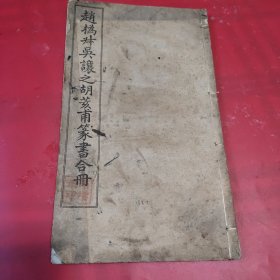 趙撝叔吳讓之胡荄甫篆書合冊